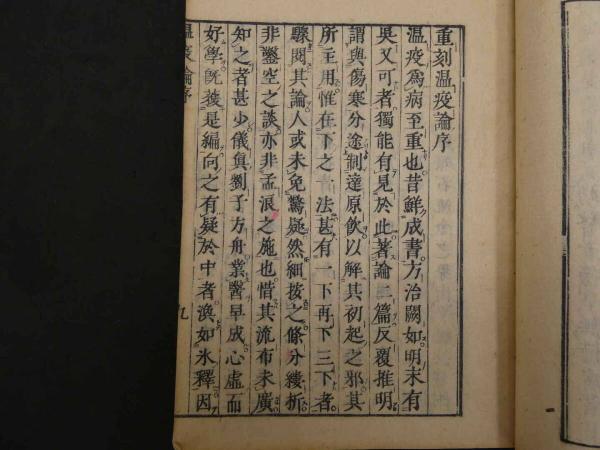 重刻温疫論序
温疫爲病至重也昔鮮成書方治闕如明末有
吳又可者獨能有見於此著論二篇反覆推明
謂與傷寒分途制達原飲以解其初起之邪其
所主用惟在下之一法甚有一下再下三下者
驟閱其論人或未免驚疑然細按之條分縷析
非鑿空之談亦非孟浪之施也惜其流布未廣
知之者甚少儀眞劉子方舟業醫早成心虛而
好學旣獲是編向之有疑於中者渙如氷釋因
温疫論序
九